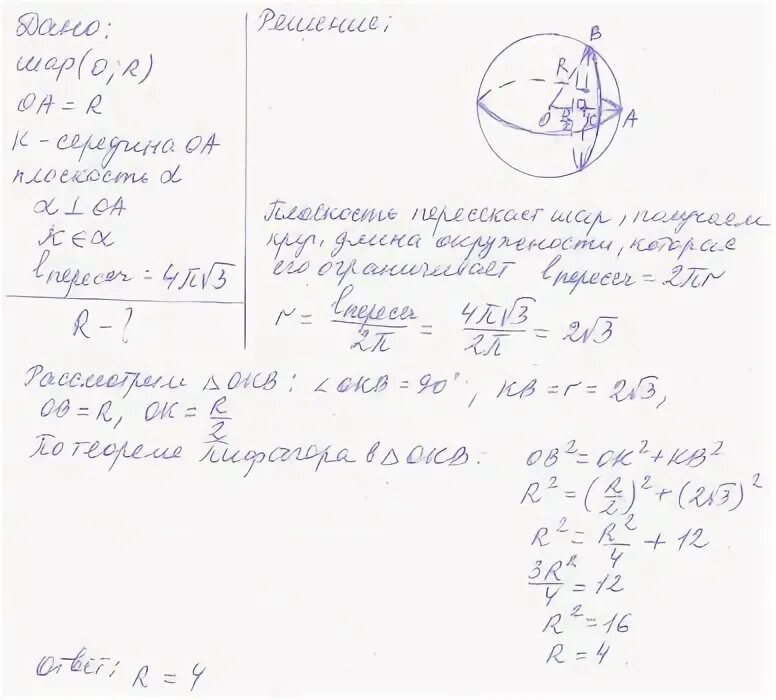 Дано:
шар (O; R)
OA = R
K - середина OA
плоскость α
α ⊥ OA
K ∈ α
lпересеч = 4π√3
R - ?
Решение:
B
R
O
R/2
K
A
Плоскость пересекает шар, получаем
круг, длина окружности, которая
его ограничивает lпересеч = 2πr
r = lпересеч/2π = 4π√3/2π = 2√3
Рассмотрим △OKB: ∠OKB = 90°, KB = r = 2√3,
OB = R, OK = R/2
По теореме Пифагора в △OKB:
OB² = OK² + KB²
R² = (R/2)² + (2√3)²
R² = R²/4 + 12
3R²/4 = 12
R² = 16
R = 4.
Ответ: R = 4